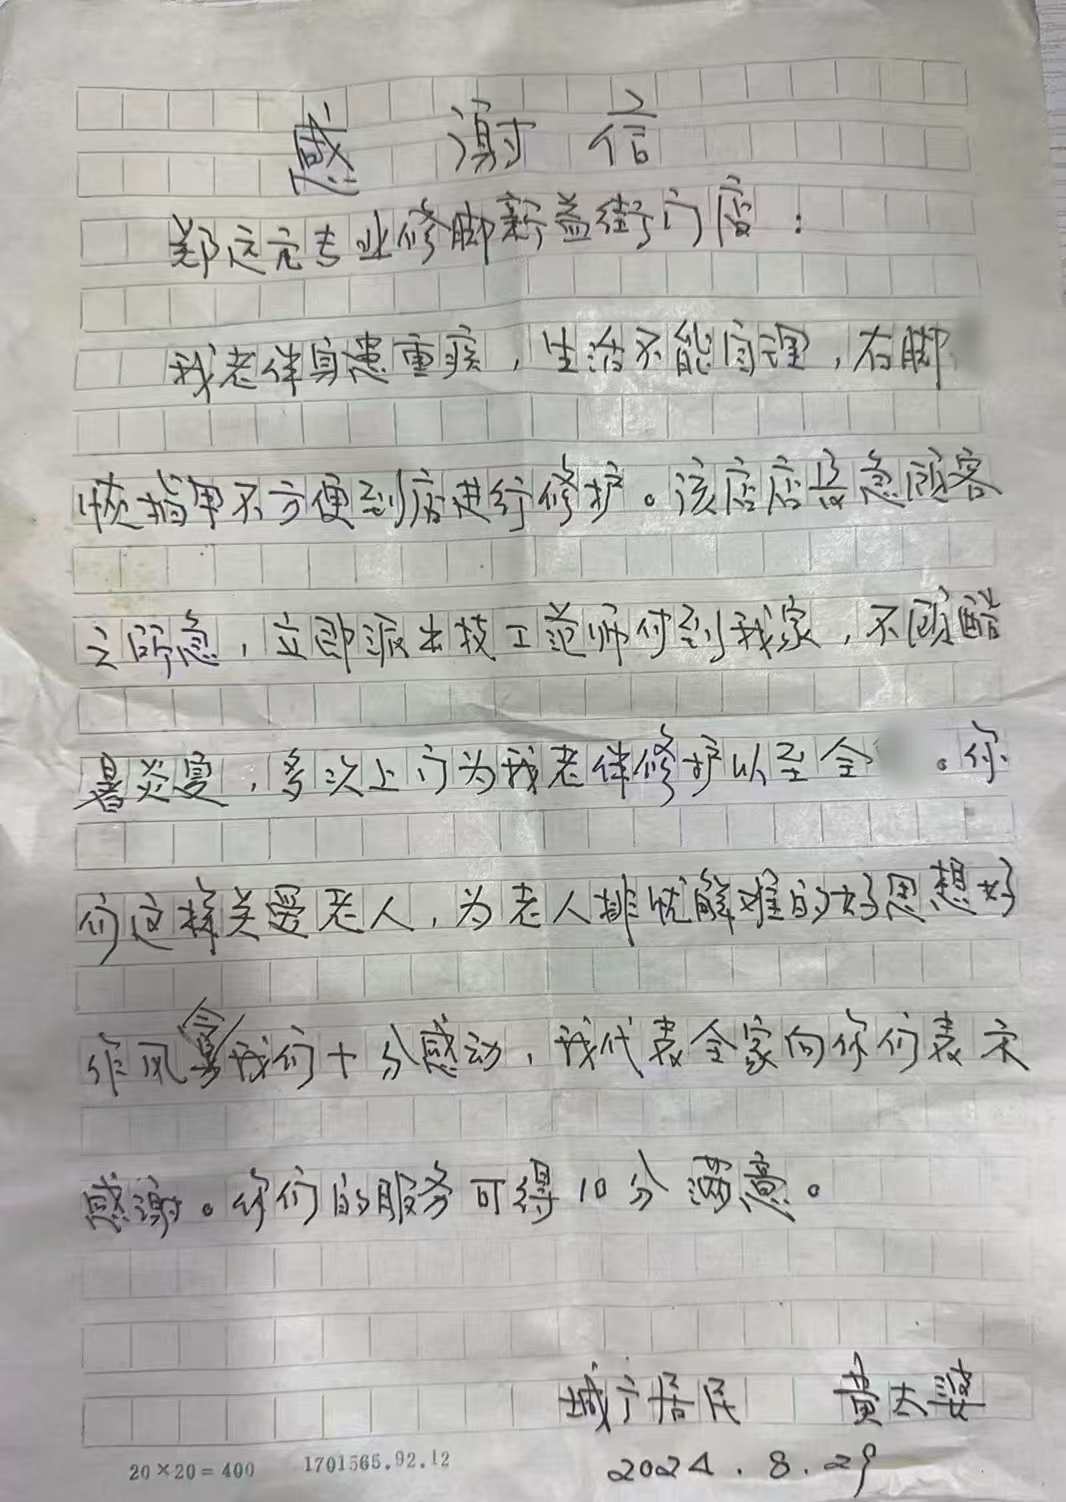 感谢信
郑远元专业修脚新益街门店：
我老伴身患重疾，生活不能自理，右脚
指甲不方便到店进行修护。该店店员急顾客
之所急，立即派出技工范师付到我家，不顾酷
暑炎夏，多次上门为我老伴修护以至全。你
们这样关爱老人，为老人排忧解难的好思想好
作风令我们十分感动，我代表全家向你们表示
感谢。你们的服务可得10分满意。
城宁居民 黄大婆
2024.8.29
20×20=400 1701565.92.12